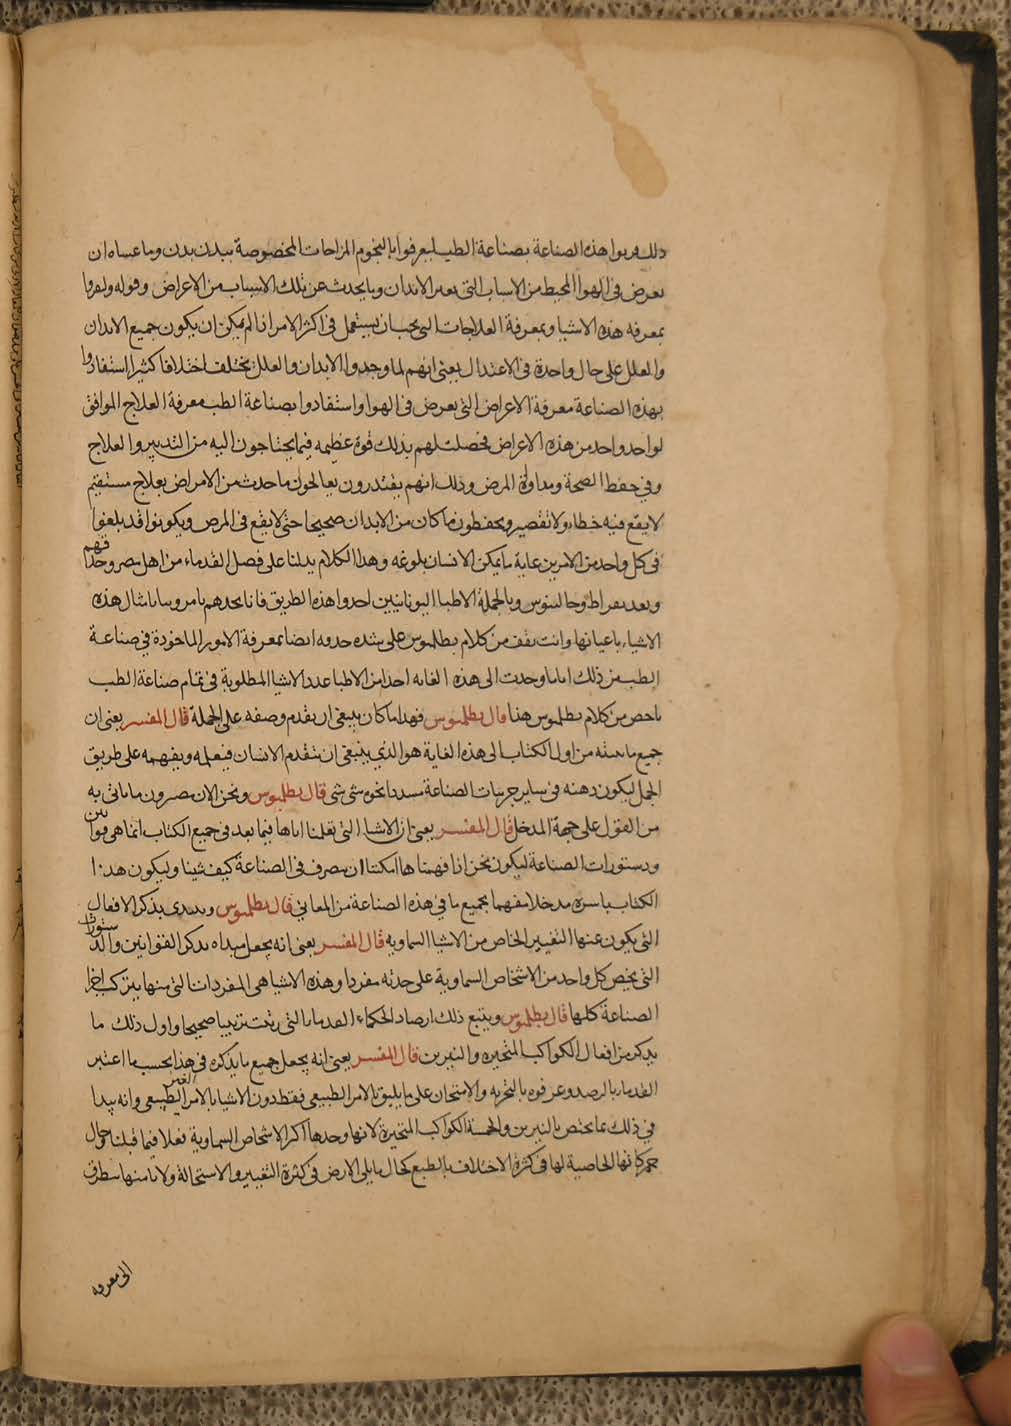 ذلك قربوا هذه الصناعة بصناعة الطب ليعرفوا بالنجوم المزاجات المخصوصة ببدن بدن وما عساه ان
يعرض في الهوا المحيط من الاسباب التي تغير الابدان وما يحدث عن تلك الاسباب من الاعراض وقوله وليفردوا
بمعرفه هذه الاشيا وبمعرفة العلاجات التي يجب ان يستعمل في اكثر الامر اذا لم يمكن ان يكون جميع الابدان
والعلل على حال واحدة في الاعتدال يعني انهم لما وجدوا الابدان والعلل تختلف اختلافا كثيرا استفادوا
بهذه الصناعة معرفة الاعراض التي يعرض في الهوا واستفادوا بصناعة الطب معرفة العلاج الموافق
لواحد واحد من هذه الاعراض فحصلت لهم بذلك قوة عظيمه فيما يحتاجون اليه من التدبير والعلاج
وفي حفظ الصحة ومداواة المرض وذلك انهم يقتدرون يعالجون ما حدث من الامراض بعلاج مستقيم
لا يقع فيه خطاء ولا تقصير ويحفظون ما كان من الابدان صحيحا حتى لا يقع في المرض ويكونوا قد بلغوا
في كل واحد من الامرين غاية ما يمكن الانسان بلوغه وهذا الكلام يدلنا على فضل القدماء من اهل مصر وحذقهم
وبعد بقراط وجالينوس وبالجملة الاطبا اليونانيين اخذوا هذه الطريق فانا نجدهم يامرونا بامثال هذه
الاشياء باعيانها وانت تقف من كلام بطلميوس على شده حذقه ايضا بمعرفة الامور الماخوذة في صناعة
الطب من ذلك اننا ما وجدت الى هذه الغايه احدا من الاطبا عدد الاشيا المطلوبة في تمام صناعة الطب
باخص من كلام بطلميوس هنا قال بطلميوس فهذا ما كان ينبغي ان يقدم وصفه على الجملة قال المفسر يعني ان
جميع ما بينته من اول الكتاب الى هذه الغاية هو الذي ينبغي ان يتقدم الانسان فيعلمه ويفهمه على طريق
الجمل ليكون ذهنه في ساير جزيات الصناعة مسددا نحو شي شي قال بطلميوس ونحن الان مصيرون ما ناتي به
من القول على جهة المدخل قال المفسر يعني ان الاشيا التي يقلنا اياها فيما بعد في جميع الكتاب انما هي قوانين
ودستورات الصناعة ليكون نحن اذا فهمناها امكننا ان نتصرف في الصناعة كيف شينا وليكون هذا
الكتاب باسره مدخلا مفهما بجميع ما في هذه الصناعة من المعاني قال بطلميوس ونبتدي بذكر الافعال
التي يكون عنها التغيير الخاص من الاشيا السماويه قال المفسر يعني انه يجعل مبداه بذكر القوانين والدستورات
التي يخص كل واحد من الاشخاص السماوية على حدته مفردا وهذه الاشيا هي المفردات التي منها يتركب اجزا
الصناعة كلها قال بطلميوس ويتبع ذلك ارصاد الحكماء القدما التي رتبت ترتيبا صحيحا واول ذلك ما
يذكر من افعال الكواكب المتحيره والنيرين قال المفسر يعني انه يجعل جميع ما يذكره في هذا بحسب ما اعتبر
القدماء بالرصد وعرفوه بالتجربه والامتحان على ما يليق بالامر الطبيعي فقط دون الاشيا بالامر الغير الطبيعي وانه يبدا
في ذلك بما يختص بالنيرين والخمسة الكواكب المتحيرة لانها وحدها اكثر الاشخاص السماوية فعلا فيما قبلنا حال
حركاتها الخاصية لها في كثرة الاختلاف بالطبع كحال ما يلي الارض في كثرة التغيير والاستحالة ولانا منها نتطرق
الى معرفه